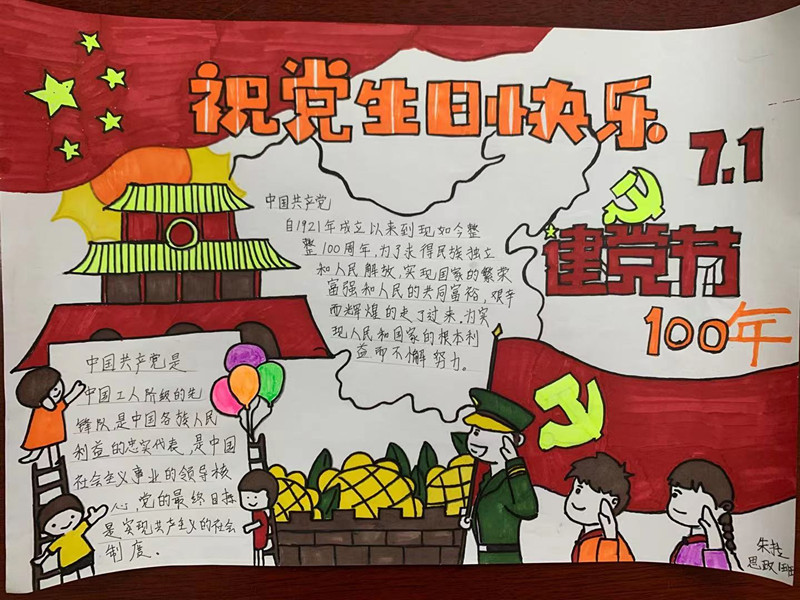 祝党生日快乐
7.1
建党节
100年
中国共产党
自1921年成立以来到现如今整
整100周年,为了求得民族独立
和人民解放,实现国家的繁荣
富强和人民的共同富裕,艰辛
而辉煌的走了过来,为实
现人民和国家的根本利
益而不懈努力。
中国共产党是
中国工人阶级的先
锋队,是中国各族人民
利益的忠实代表,是中国
社会主义事业的领导核
心,党的最终目标
是实现共产主义的社会
制度。
朱
思政